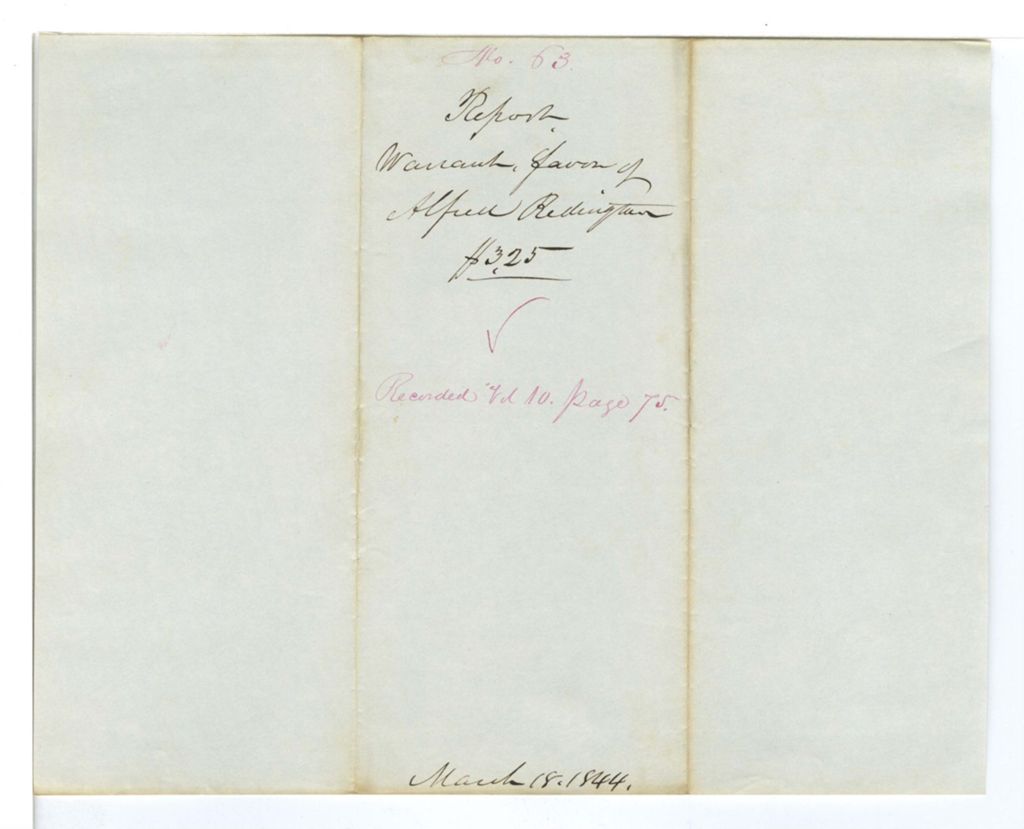 No. 63.
Report
Warrant, favor of
Alfred Redington
$325
Recorded Vol 10. page 75.
March 18. 1844.